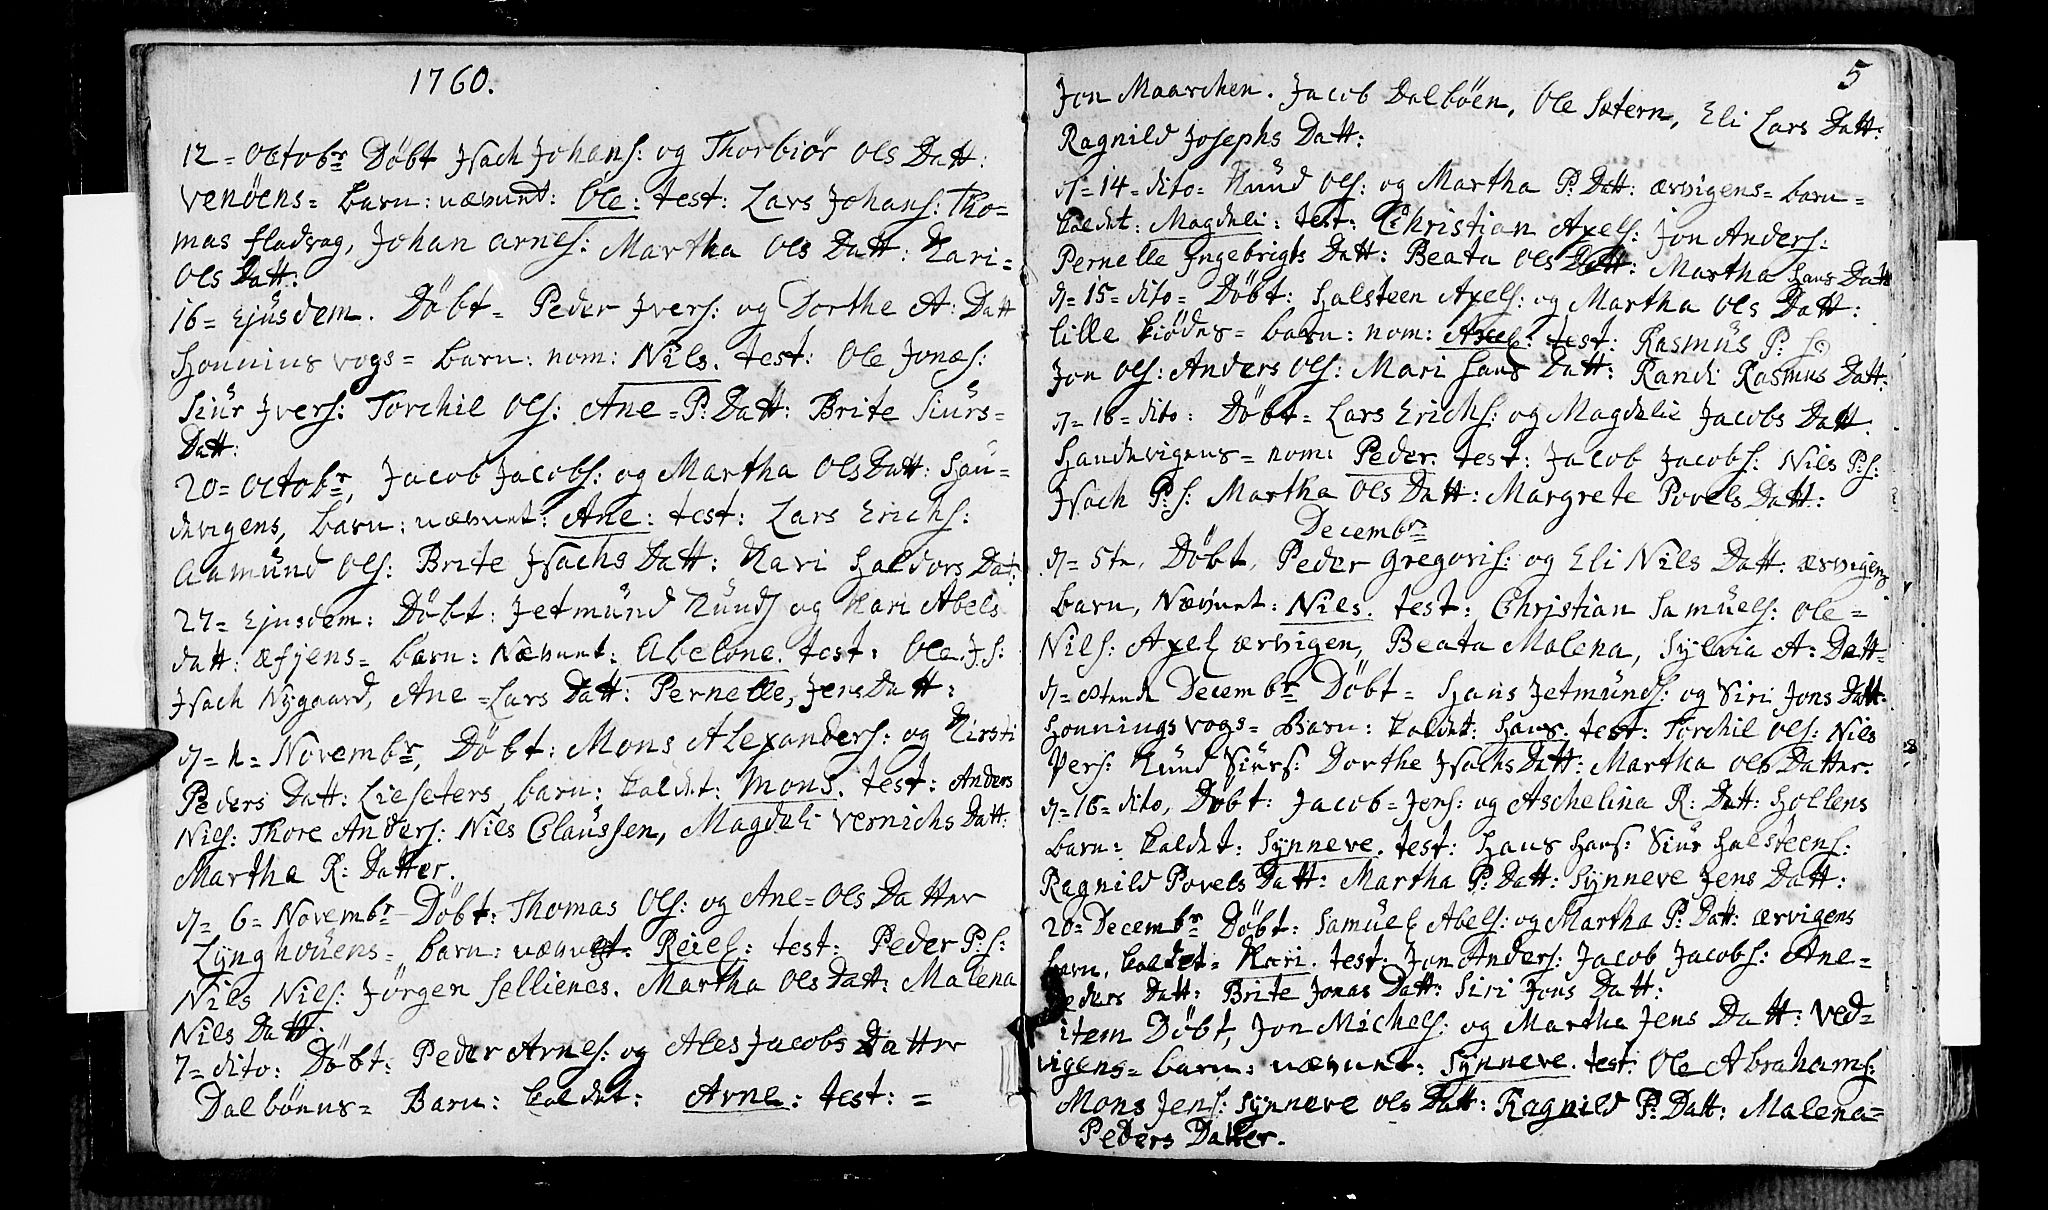 1760.
12 = Octobr Døbt Jsach Johans: og Thorbiør Ols Datt:
Venöens = barn: nævnt: Ole: test: Lars Johans: Tho=
mas fladvag, Johan arnes: Martha Ols Datt: Kari =
Ols Datt:
16 = Ejusdem. Døbt = Peder Jvers: og Dorthe A: Datt
Honnins vogs = barn: nom: Nils. test: Ole Jonæs:
Siur Jvers: Torchil Ols: Ane = P: Datt: Brite Siurs =
Datt:
20 = Octobr, Jacob Jacobs: og Martha Ols Datt: Hau =
dvigens, barn: nævnt: Ane: test: Lars Erichs:
Aamund Ols: Brite Jsachs Datt: Kari Haldors Dat:
27 = Ejusdem: Døbt: Jetmund Kunds og Kari Abels
datt: æfjens = barn: Nævnt: Abelone. test: Ole J.S:
Jsach Nygaard, Ane = Lars Datt: Pernelle, Jens Datt:
d = 2 = Novembr, Døbt: Mons Alexanders: og Kirsti
Peders Datt: Lieseters barn: kaldt: Mons. test: Anders
Nils: Thore Anders: Nils Claussen, Magdeli Vernichs Datt:
Martha R: Datter.
d = 6 = Novembr Døbt: Thomas Ols: og Ane = Ols Datter
Lynghouens = barn: nævnt: Reiel: test: Peder P: S:
Nils Nils: Jörgen Sellienes. Martha Ols Datt: Malena
Nils Datt:
7 = dito: Døbt: Peder Arnes: og Ales Jacobs Datter
Dalbönns = Barn: kaldet: Arne: test: =
5
Jon Maarchen. Jacob Dalböen, Ole Sætern, Eli Lars Datt:
Ragnild Josephs Datt:
d = 14 = dito = Knud Ols: og Martha P: Datt: ærvigens = barn =
kaldt: Magdeli: test: Christian Axels: Jon Anders:
Pernelle Ingebrigts Datt: Beata Ols Datt: Martha Hans Datt
d = 15 = dito = Døbt: Halsteen Axels: og Martha Ols Datt:
lille kiødes = barn: nom: Axel: test: Rasmus P: S:
Jon Ols: Anders Ols: Mari Hans Datt: Randi Rasmus Datt:
d = 16 = dito: Døbt = Lars Erichs: og Magdelie Jacobs Datt
Haudvigens = nom: Peder. test: Jacob Jacobs: Nils P: S:
Jsach P: S: Martha Ols Datt: Margrete Povels Datt:
Decembr
d = 5te, Døbt, Peder Gregoris: og Eli Nils Datt: ærvigens
barn, Nævnt: Nils. test: Christian Samuels: Ole =
Nils: Axel ærvigen, Beata Malena, Sylvia A: Datt =
d = 8tende Decembr Døbt = Hans Jetmunds: og Siri Jons Datt:
Honnings vogs = Barn: kaldt: Hans. test: Torchil Ols: Nils
Pers: Knud Siurs: Dorthe Jsachs Datt: Martha Ols Datter.
d = 16 = dito, Døbt: Jacob = Jens: og Aschelina R: Datt: Hollens
barn: kaldet: Synneve. test: Hans Hans: Siur Halsteens:
Ragnild Povels Datt: Martha P: Datt: Synneve Jens Datt:
20 = Decembr Døbt: Samuel Abels: og Martha P: Datt: ærvigens
barn, kaldet = Kari. test: Jon Anders: Jacob Jacobs: Ane =
Peders Datt: Brite Jonas Datt: Siri Jons Datt:
item Døbt, Jon Michels: og Martha Jens Datt: Ved =
vigens = barn: nævnt: Synneve. test: Ole Abrahams:
Mons Jens: Synneve Ols Datt: Ragnild P: Datt: Malena =
Peders Datter.